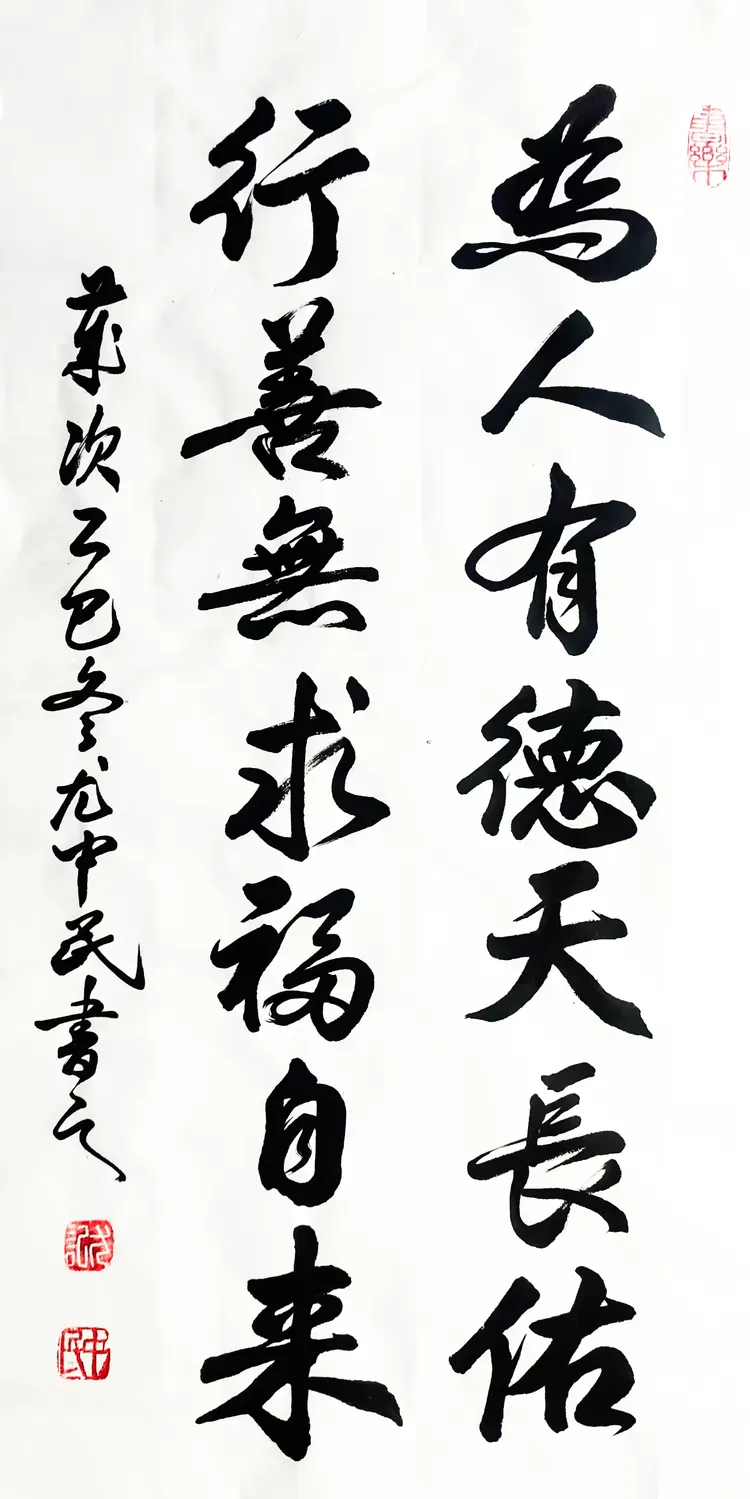 為人有德天長佑
行善無求福自来
歲次乙巳冬尤中民書之